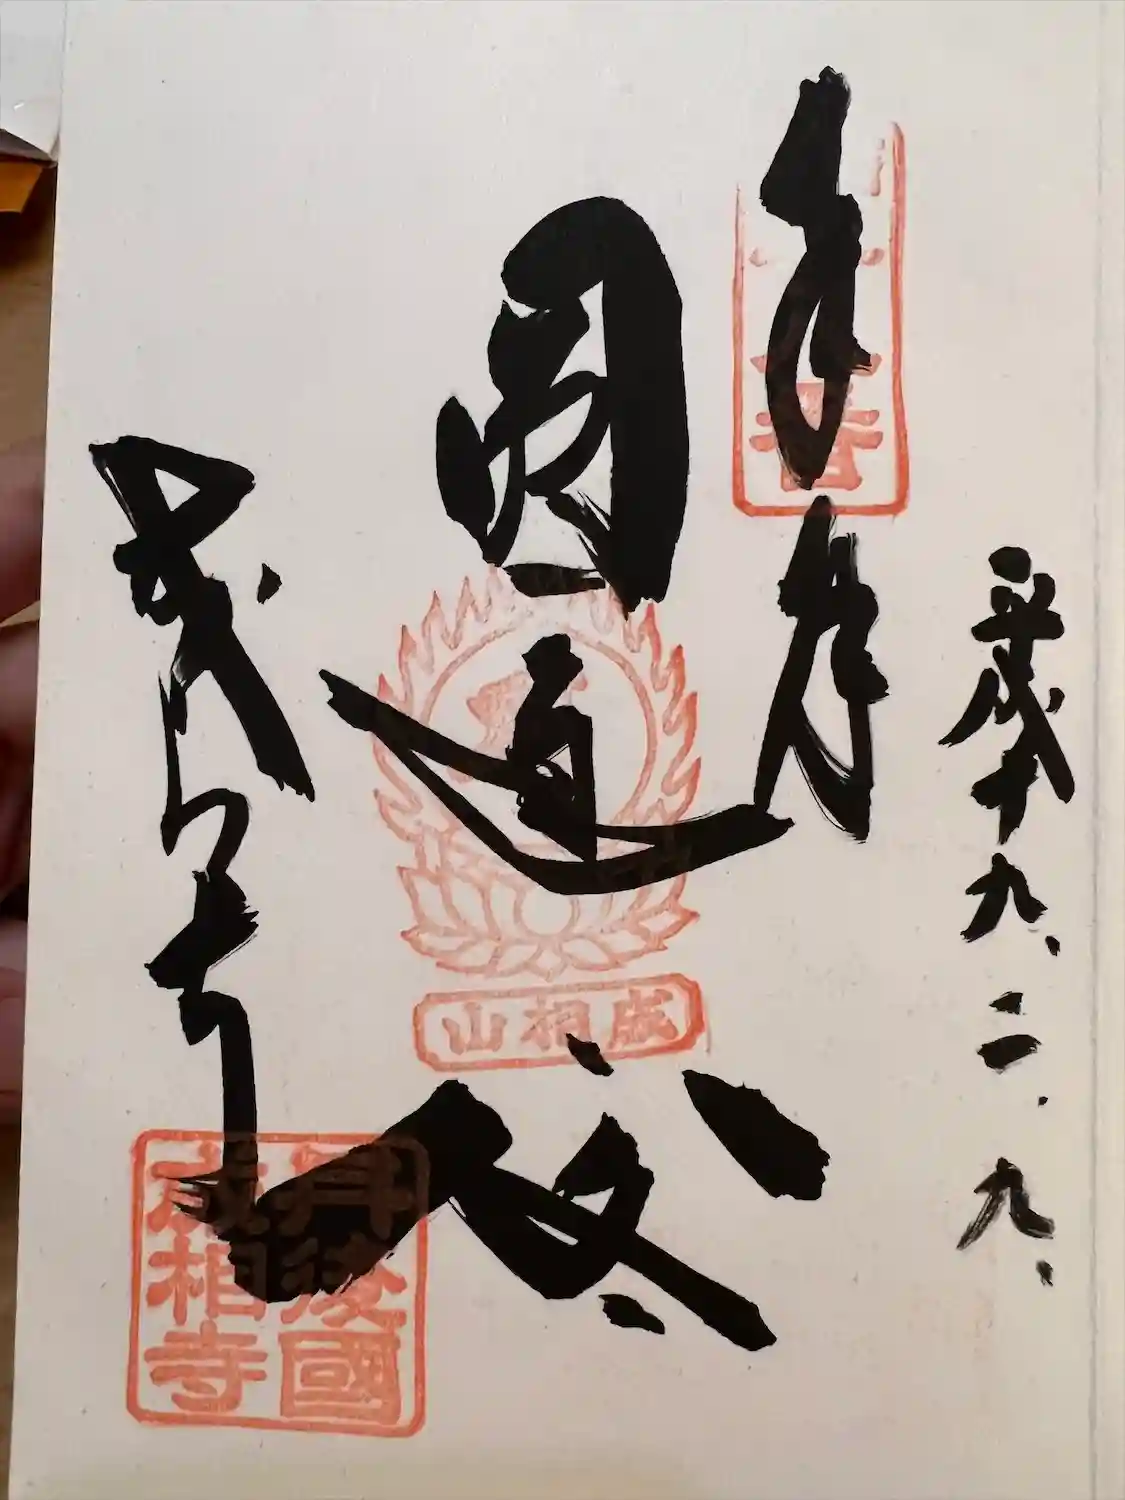 平成十九、二、九、
奉拝
円通殿
成相寺
成相山
丹後國
成相寺